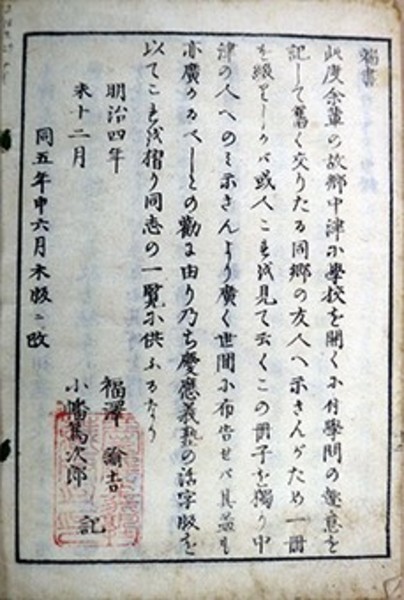 端書
此度余輩の故郷中津に學校を開くに付學問の趣意を
記して舊く交りたる同郷の友人へ示さんがため一冊
を綴りしかバ或人これを見て云くこの冊子を獨り中
津の人へのミ示さんより廣く世間に布告せバ其益も
亦廣かるべしとの勸に由り乃ち慶應義塾の活字版を
以てこれを摺り同志の一覧に供ふるなり
明治四年
未十二月
福澤諭吉
小幡篤次郎
記
同五年申六月木版ニ改